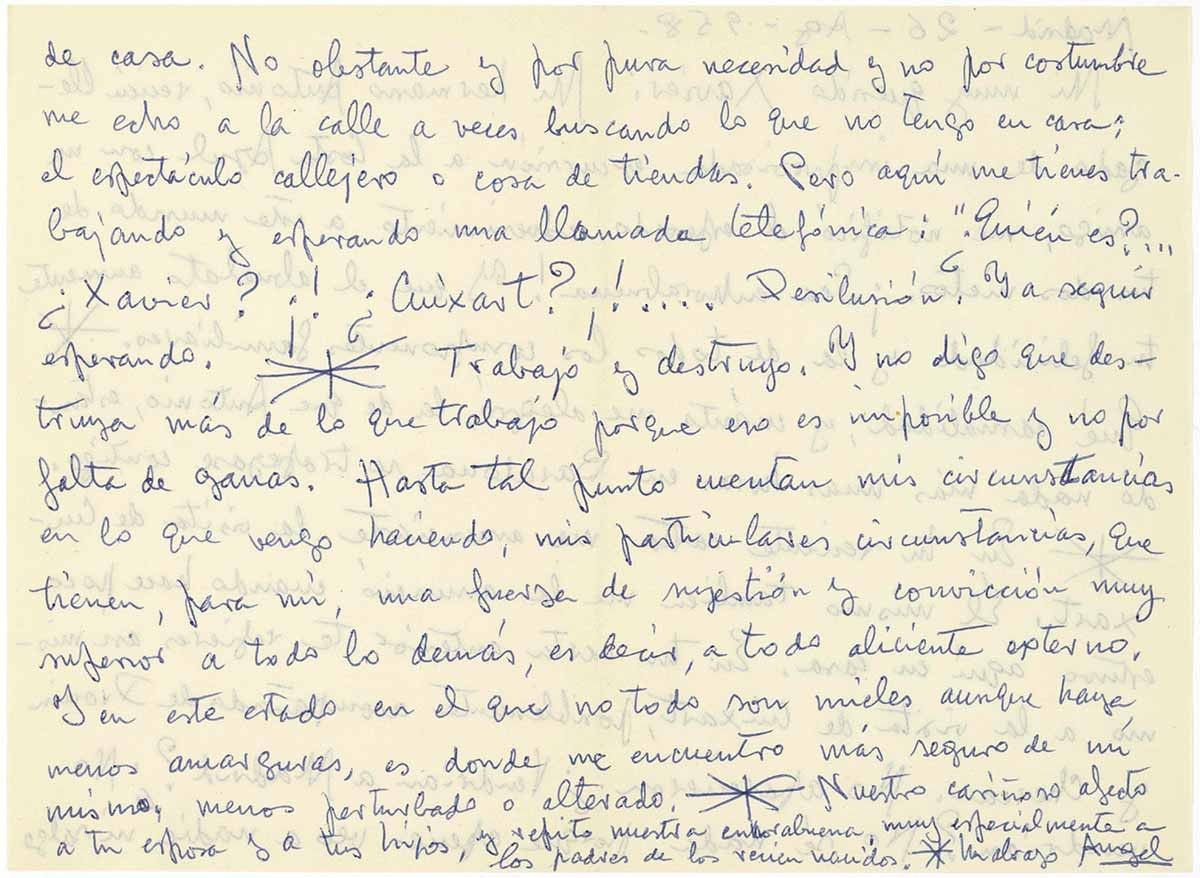 de casa. No obstante y por pura necesidad y no por costumbre
me echo a la calle a veces buscando lo que no tengo en casa;
el espectáculo callejero o cosa de tiendas. Pero aquí me tienes tra-
bajando y esperando una llamada telefónica: "¿Quién es?...
¿Xavier? ¡! ¿Cuixart? ¡!..... Desilusión. Y a seguir
esperando. Trabajo y destruyo. Y no digo que des-
truya más de lo que trabajo porque eso es imposible y no por
falta de ganas. Hasta tal punto cuentan mis circunstancias
en lo que vengo haciendo, mis particulares circunstancias, que
tienen, para mí, una fuerza de sujestión y convicción muy
superior a todo lo demás, es decir, a todo aliciente externo.
Y en este estado en el que no todo son mieles aunque haya
menos amarguras, es donde me encuentro más seguro de mí
mismo; menos perturbado o alterado. Nuestro cariñoso afecto
a tu esposa y a tus hijos, y repito nuestra enhorabuena muy especialmente a
los padres de los recien nacidos. Un abrazo Angel